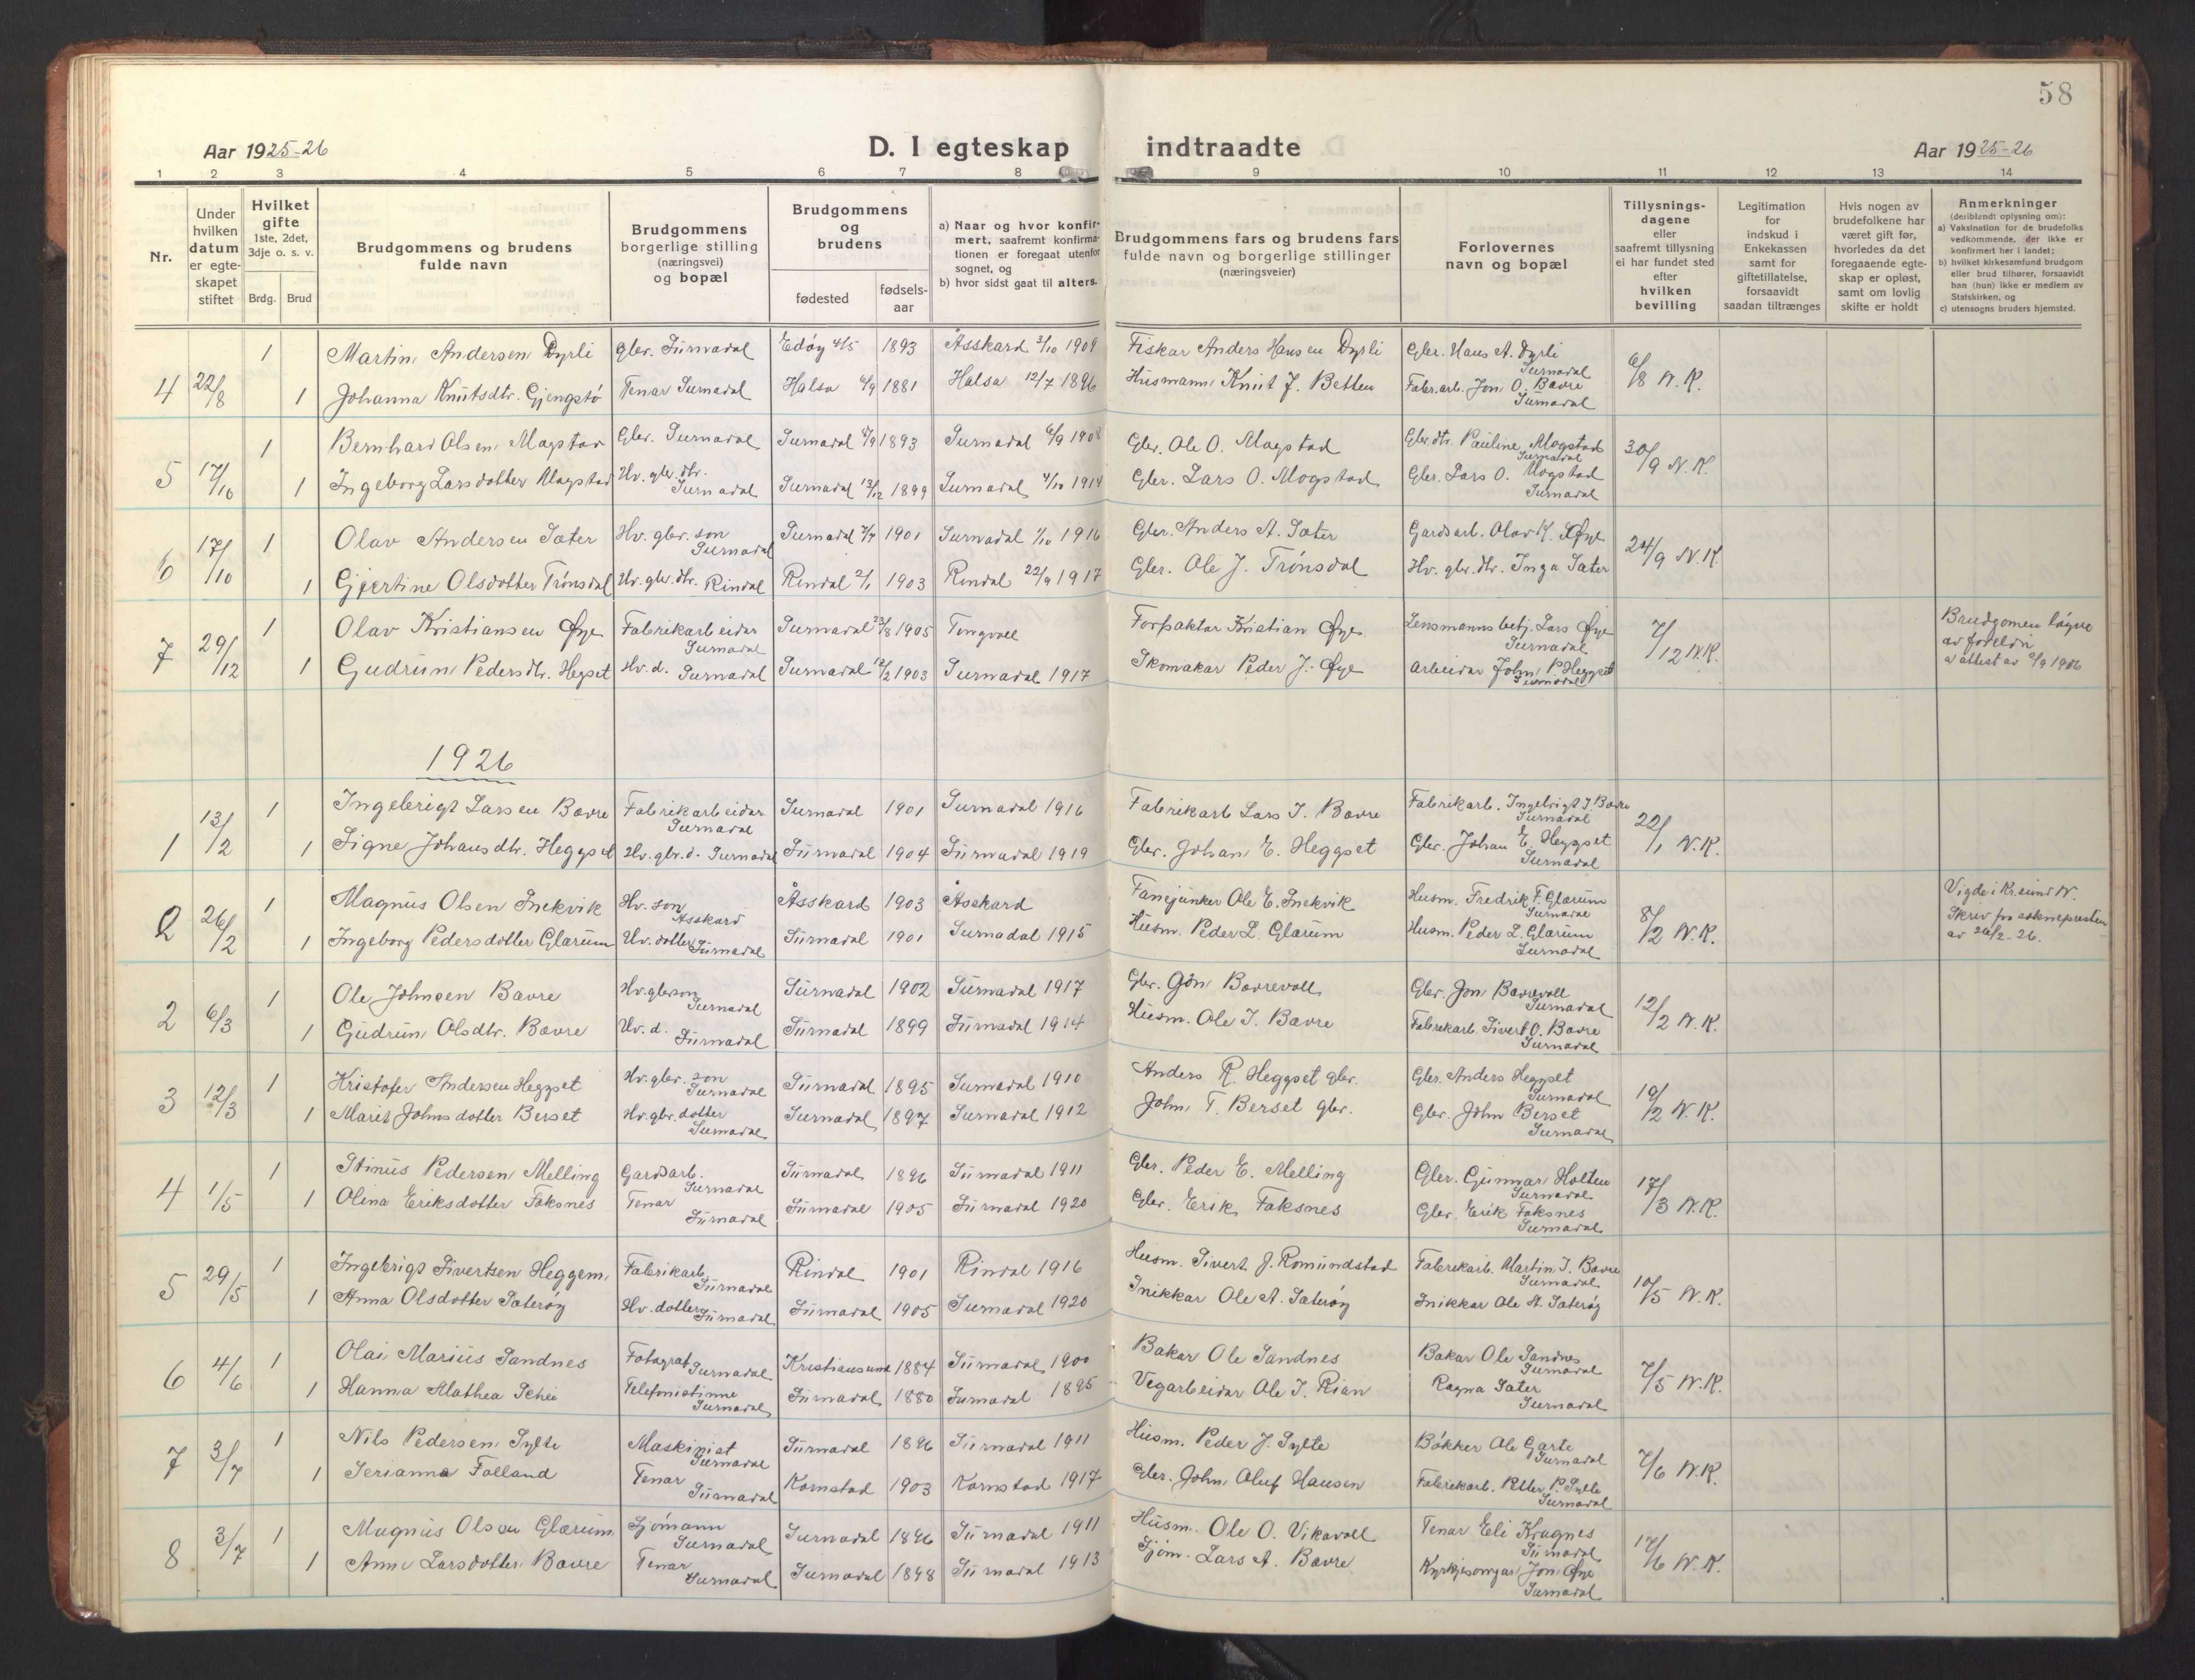 58
Aar 1925-26 D. I egteskap indtraadte Aar 1925-26
1 2 3 4 5 6 7 8 9 10 11 12 13 14
Nr.
Under hvilken datum er egte-skapet stiftet
Hvilket gifte 1ste, 2det, 3dje o. s. v.
Brdg. Brud
Brudgommens og brudens fulde navn
Brudgommens borgerlige stilling (næringsvei) og bopæl
Brudgommens og brudens
fødested
fødsels-aar
a) Naar og hvor konfir-mert, saafremt konfirma-tionen er foregaat utenfor sognet, og
b) hvor sidst gaat til alters.
Brudgommens fars og brudens fars fulde navn og borgerlige stillinger (næringsveier)
Forlovernes navn og bopæl
Tillysnings-dagene eller saafremt tillysning ei har fundet sted efter hvilken bevilling
Legitimation for indskud i Enkekassen samt for giftetillatelse, forsaavidt saadan tiltrænges
Hvis nogen av brudefolkene har været gift før, hvorledes da det foregaaende egte-skap er opløst, samt om lovlig skifte er holdt
Anmerkninger
(deriblandt oplysning om):
a) Vaksination for de brudefolks vedkommende, der ikke er konfirmert her i landet;
b) hvilket kirkesamfund brudgom eller brud tilhører, forsaavidt han (hun) ikke er medlem av Statskirken, og
c) utensogns bruders hjemsted.
4 22/8 1 Martin Andersen Dyrli gbr. Surnadal Edøy 4/5 1893 Åsskard 3/10 1909 Fiskar Anders Hansen Dyrli Gbr. Hans A. Dyrli Surnadal 6/8 N.K.
1 Johanna Knutsdtr. Gjengstø Tenar Surnadal Halsa 4/9 1881 Halsa 12/7 1896 Husmann Knut J. Betten Fabr.arb. Jon O. Bævre Surnadal
5 17/10 1 Bernhard Olsen Mogstad Gbr. Surnadal Surnadal 4/9 1893 Surnadal 6/9 1908 Gbr. Ole O. Mogstad Gbr.dtr. Pauline Mogstad Surnadal 30/9 N.K.
1 Ingeborg Larsdotter Mogstad Hv. gbr. dtr. Surnadal Surnadal 13/12 1899 Surnadal 4/10 1914 Gbr. Lars O. Mogstad Gbr. Lars O. Mogstad Surnadal
6 17/10 1 Olav Andersen Sæter Hv. gbr. son Surnadal Surnadal 7/7 1901 Surnadal 1/10 1916 Gbr. Anders A. Sæter Gardsarb. Olav K. Øye 24/9 N.K.
1 Gjertine Olsdotter Trønsdal Hv. gbr. dtr. Rindal Rindal 2/1 1903 Rindal 22/9 1917 Gbr. Ole J. Trønsdal Hv. gbr. dtr. Inga Sæter
7 29/12 1 Olav Kristiansen Øye Fabrikarbeidar Surnadal Surnadal 23/8 1905 Tingvoll Forpaktar Kristian Øye Lensmannsbetj. Lars Øye Surnadal 7/12 N.K. Brudgomen løgve av foreldri
a) attest av 2/9 1906
1 Gudrun Pedersdtr. Hegset Hv. d. Surnadal Surnadal 12/2 1903 Surnadal 1917 Skomakar Peder J. Øye Arbeidar John P. Heggset Surnadal
1926
1 13/2 1 Ingebrigt Larsen Bævre Fabrikarbeidar Surnadal Surnadal 1901 Surnadal 1916 Fabrikarb Lars I. Bævre Fabrikarb. Ingebrigt I. Bævre Surnadal 22/1 N.K.
1 Signe Johansdtr. Heggset Hv. gbr. d. Surnadal Surnadal 1904 Surnadal 1919 Gbr. Johan E. Heggset Gbr. Johan E. Heggset Surnadal
2 26/2 1 Magnus Olsen Snekvik Hv. son Åsskard Åsskard 1903 Åsskard Fanejunker Ole E. Snekvik Husm. Fredrik F. Glærum Surnadal 8/2 N.K. Vigde i Kr.sund N.
Skriv fra soknepresten av 26/2-26.
1 Ingeborg Pedersdotter Glærum Hv. dotter Surnadal Surnadal 1901 Surnadal 1915 Husm. Peder L. Glærum Husm. Peder L. Glærum Surnadal
2 6/3 1 Ole Johnsen Bævre Hv. gbr.son Surnadal Surnadal 1902 Surnadal 1917 Gbr. Jon Bævrevoll Gbr. Jon Bævrevoll Surnadal 12/2 N.K.
1 Gudrun Olsdtr. Bævre Hv. d. Surnadal Surnadal 1899 Surnadal 1914 Husm. Ole I. Bævre Fabrikarb. Sivert O. Bævre Surnadal
3 12/3 1 Kristofer Andersen Heggset Hv. gbr. son Surnadal Surnadal 1895 Surnadal 1910 Anders R. Heggset gbr. Gbr. Anders Heggset Surnadal 19/2 N.K.
1 Marit Johnsdotter Berset Hv. gbr. dotter Surnadal Surnadal 1897 Surnadal 1912 John T. Berset gbr. Gbr. John Berset Surnadal
4 1/5 1 Stinus Pedersen Melling Gardsarb. Surnadal Surnadal 1896 Surnadal 1911 Gbr. Peder E. Melling Gbr. Gunnar Holten Surnadal 17/3 N.K.
1 Olina Eriksdotter Faksnes Tenar Surnadal Surnadal 1905 Surnadal 1920 Gbr. Erik Faksnes Gbr. Erik Faksnes Surnadal
5 29/5 1 Ingebrigt Sivertsen Heggem Fabrikarb. Surnadal Rindal 1901 Rindal 1916 Husm. Sivert J. Romundstad Fabrikarb. Martin I. Bævre Surnadal 10/5 N.K.
1 Anna Olsdotter Sæterøy Hv. dotter Surnadal Surnadal 1905 Surnadal 1920 Snikkar Ole A. Sæterøy Snikkar Ole A. Sæterøy
6 4/6 1 Olai Marius Sandnes Fotograf Surnadal Kristiansund 1884 Surnadal 1900 Bakar Ole Sandnes Bakar Ole Sandnes Surnadal 7/5 N.K.
1 Hanna Mathea Schei Telefonistinne Surnadal Surnadal 1880 Surnadal 1895 Vegarbeidar Ole I. Rian Ragna Sæter Surnadal
7 3/7 1 Nils Pedersen Sylte Maskinist Surnadal Surnadal 1896 Surnadal 1911 Husm. Peder J. Sylte Bøkker Ole Garte Surnadal 7/6 N.K.
1 Serianna Folland Tenar Surnadal Kornstad 1903 Kornstad 1917 Gbr. John Oluf Hansen Fabrikarb. Petter P. Sylte Surnadal
8 3/7 1 Magnus Olson Glærum Sjømann Surnadal Surnadal 1896 Surnadal 1911 Husm. Ole O. Vikavoll Tenar Eli Kragnes Surnadal 17/6 N.K.
1 Anne Larsdotter Bævre Tenar Surnadal Surnadal 1898 Surnadal 1913 Sjøm. Lars A. Bævre Kyrkjesongar Jon Øye Surnadal